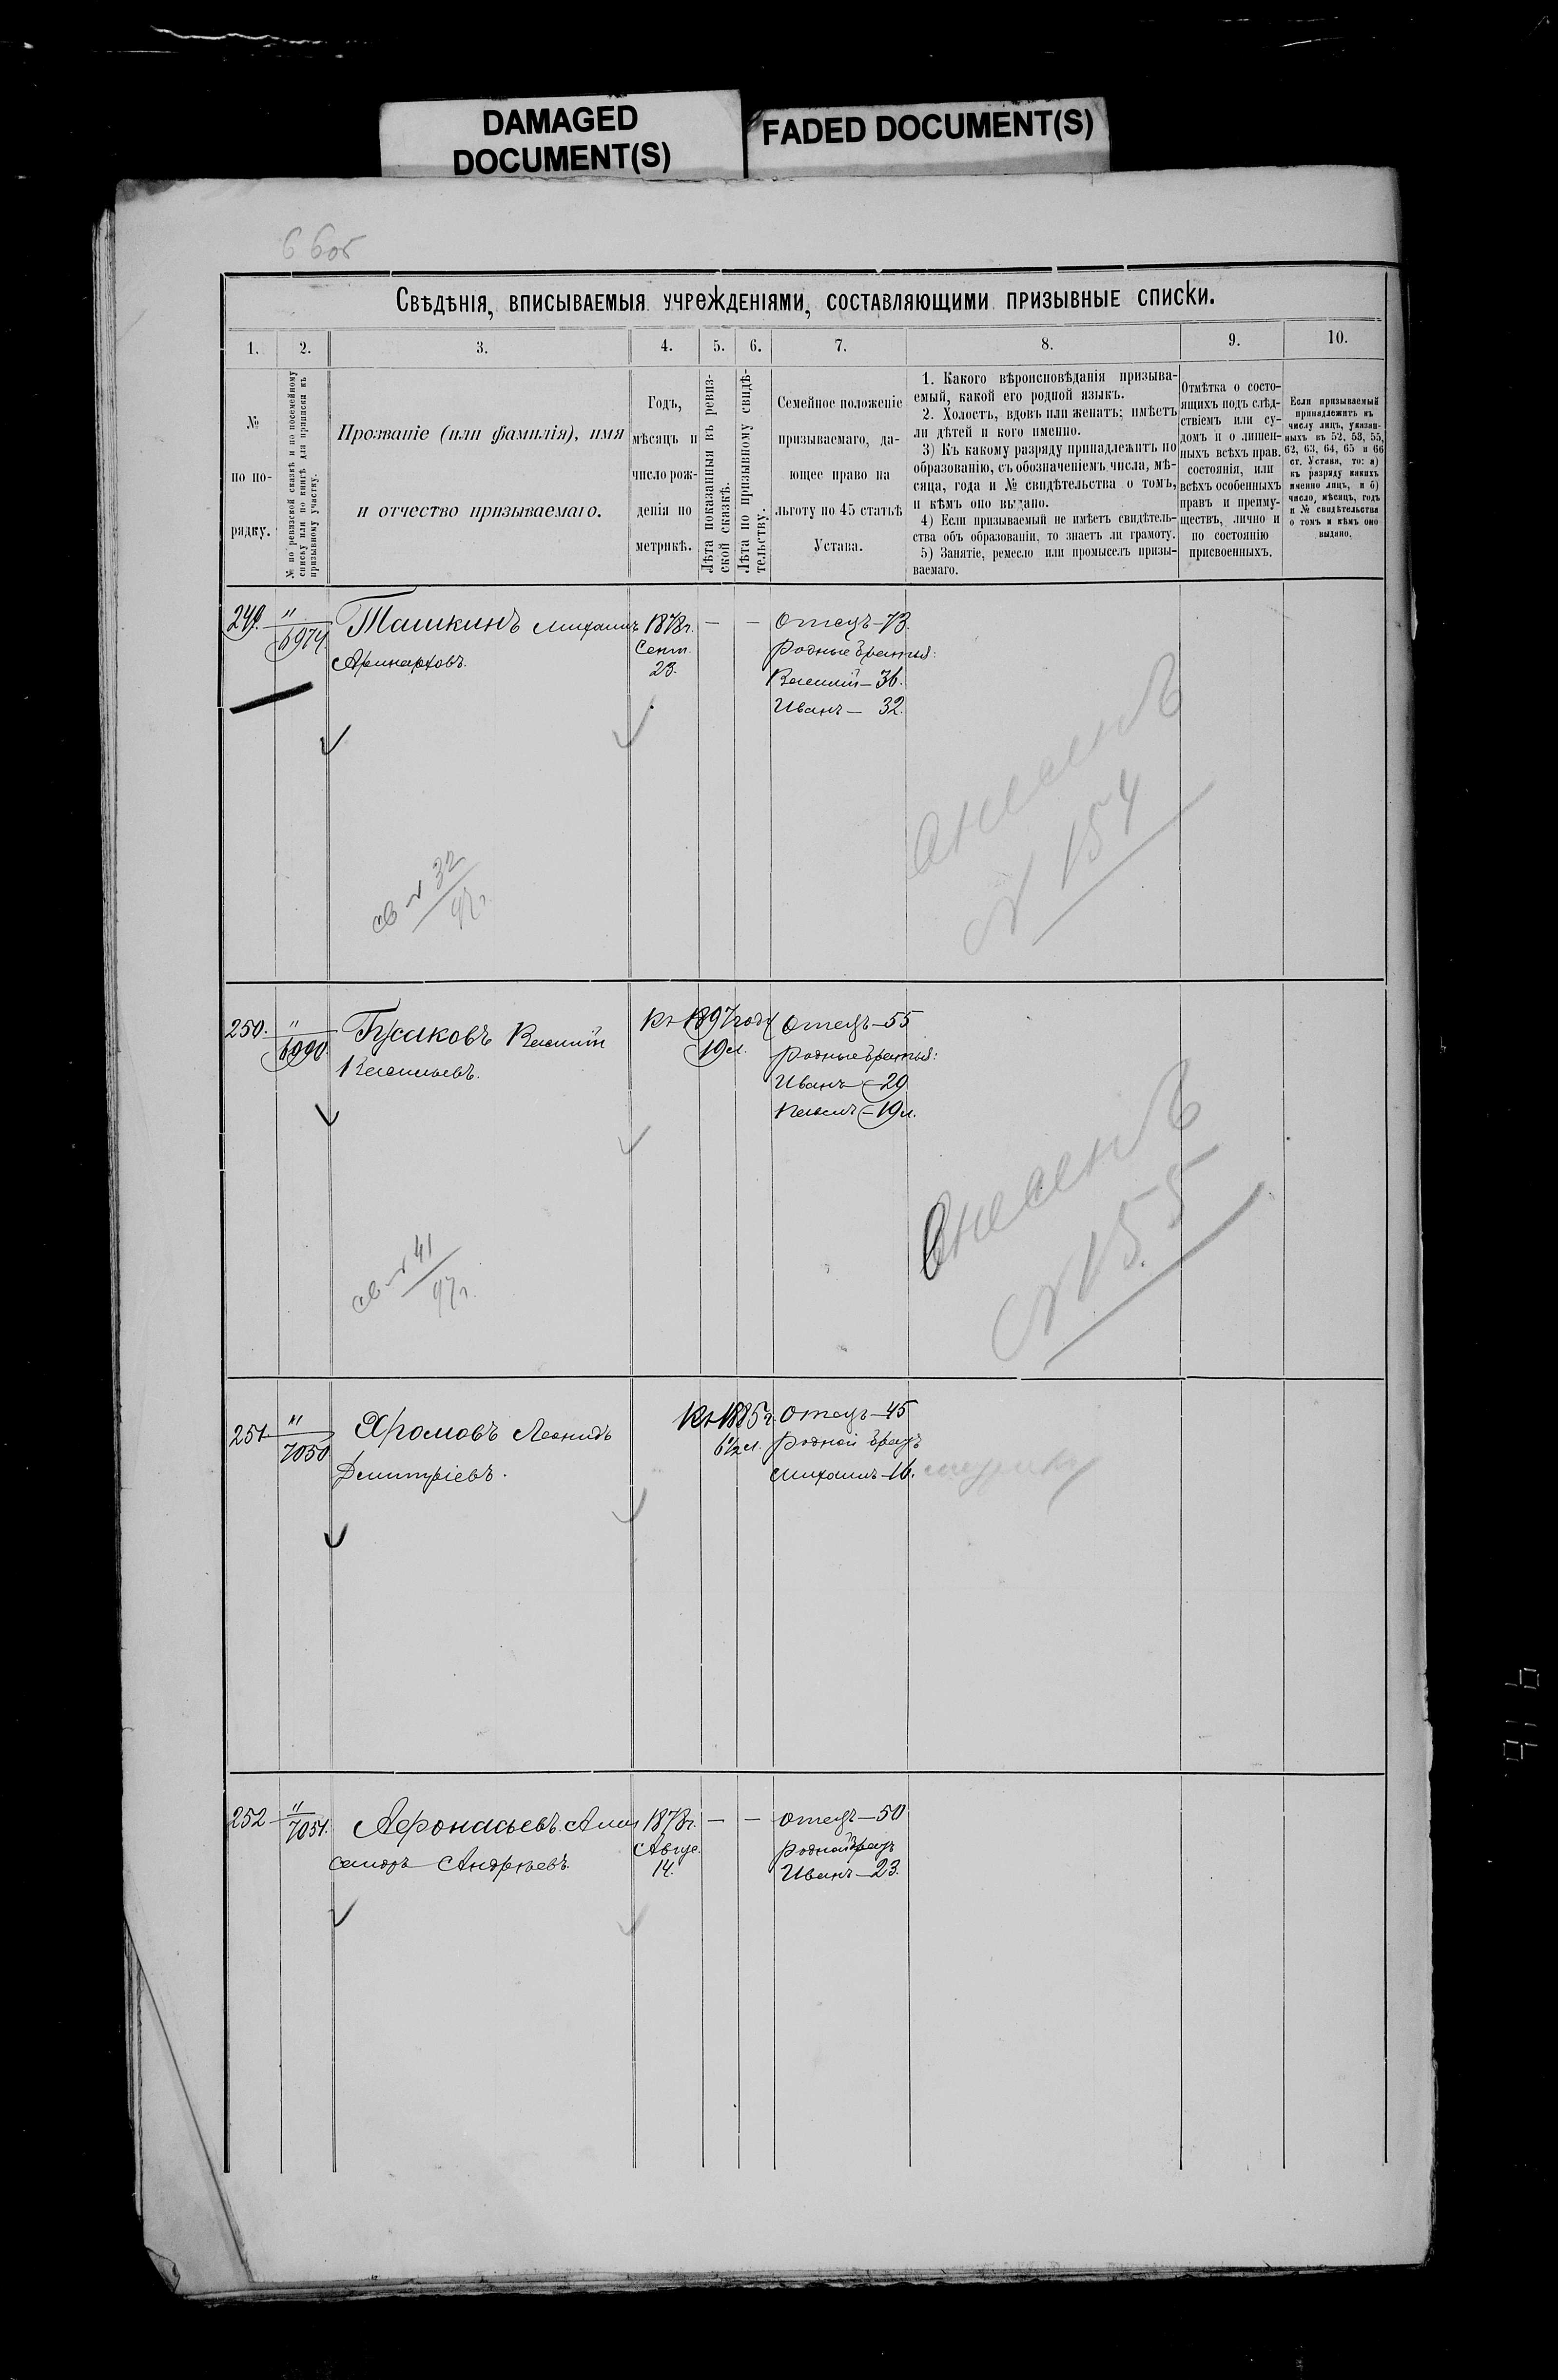 DAMAGED
DOCUMENT(S)
FADED DOCUMENT(S)
6 6об
Свѣдѣнія, вписываемыя учрежденіями, составляющими призывные списки.
1. 2. 3. 4. 5. 6. 7. 8. 9. 10.
№
по по-
рядку.
№ по ревизской сказкѣ и по посемейному
списку или по книгѣ для приписки къ
призывному участку.
Прозваніе (или фамилія), имя
и отчество призываемаго.
Годъ,
мѣсяцъ и
число рож-
денія по
метрикѣ.
Лѣта показанныя въ ревиз-
ской сказкѣ.
Лѣта по призывному свидѣ-
тельству.
Семейное положеніе
призываемаго, да-
ющее право на
льготу по 45 статьѣ
Устава.
1. Какого вѣроисповѣданія призыва-
емый, какой его родной языкъ.
2. Холостъ, вдовъ или женатъ; имѣетъ
ли дѣтей и кого именно.
3) Къ какому разряду принадлежитъ по
образованію, съ обозначеніемъ числа, мѣ-
сяца, года и № свидѣтельства о томъ,
и кѣмъ оно выдано.
4) Если призываемый не имѣетъ свидѣтель-
ства объ образованіи, то знаетъ ли грамоту.
5) Занятіе, ремесло или промыселъ призы-
ваемаго.
Отмѣтка о состо-
ящихъ подъ слѣд-
ствіемъ или су-
домъ и о лишен-
ныхъ всѣхъ прав.
состоянія, или
всѣхъ особенныхъ
правъ и преиму-
ществъ, лично и
по состоянію
присвоенныхъ.
Если призываемый
принадлежитъ къ
числу лицъ, указан-
ныхъ въ 52, 53, 55,
62, 63, 64, 65 и 66
ст. Устава, то: а)
къ разряду какихъ
именно лицъ, и б)
число, мѣсяцъ, годъ
и № свидѣтельства
о томъ и кѣмъ оно
выдано.
249. " 6974. Ташкинъ Михаилъ 1878г. — — Отецъ—73.
Аринарховъ. Сент. Родные братья:
23. Василій—36.
Иванъ— 32.
внесенъ
№ 154
св № 32
97г.
250. " 6990. Гусаковъ Василій Къ 1897 году Отецъ—55
Васильевъ. 19л. Родные братья:
Иванъ—29
Павелъ—19л.
внесенъ
№ 155
св № 41
97г.
251 " 7050 Хромовъ Леонидъ Къ 1885г. Отецъ—45
Дмитріевъ. 6½л. Родной братъ
Михаилъ—16.
252 " 7051. Афонасьевъ Алек 1878г. — — Отецъ—50
сандръ Андреевъ. Авгус. Родной братъ
14. Иванъ—23.
916